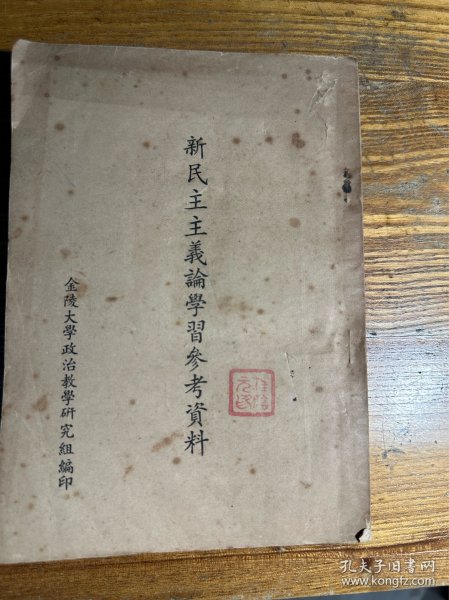 新民主主義論學習參考資料
金陵大學政治教學研究組編印
孔夫子旧书网
www.kongfz.com